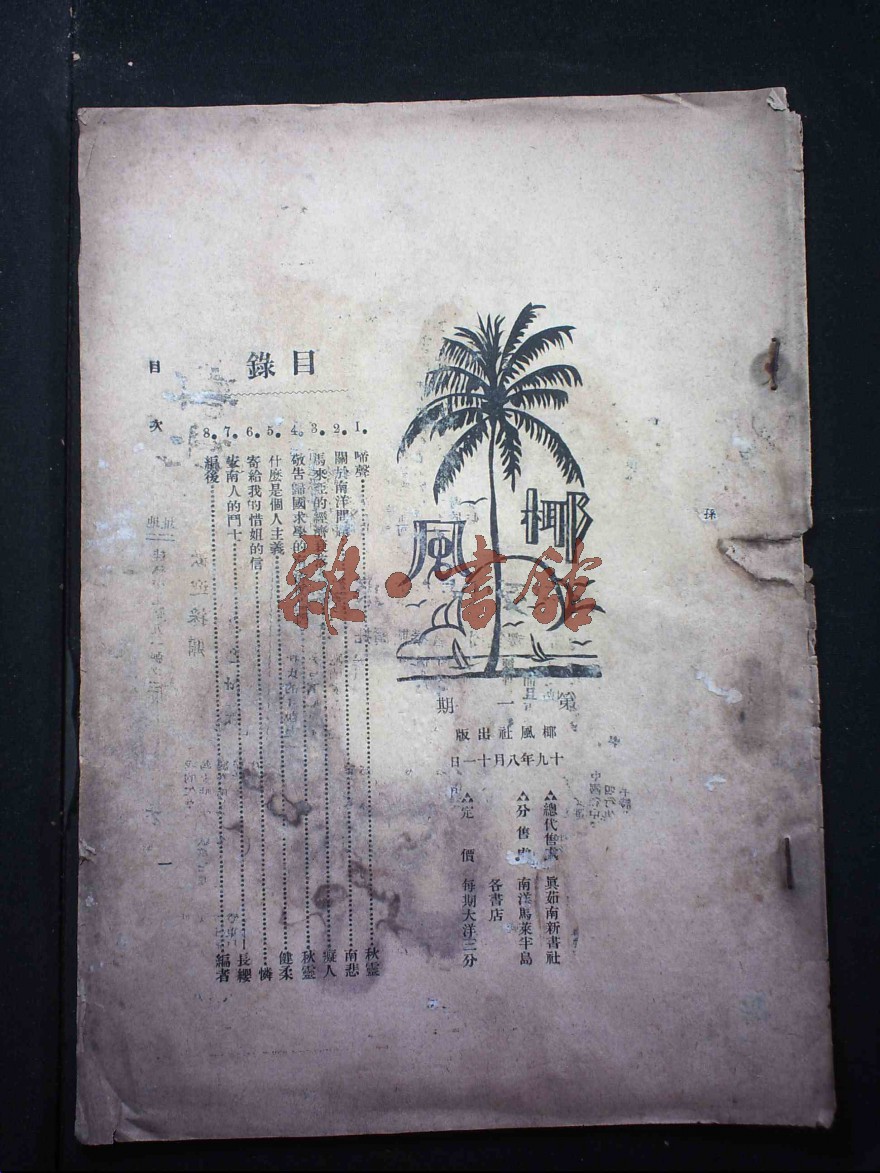 椰風
第一期
椰風社出版
十九年八月十一日
△總代售處 眞茹南新書社
△分售處 南洋馬萊半島
各書店
△定價 每期大洋三分
目錄
1. 啼聲 秋靈
2. 關於南洋問 南悲
3. 馬來亞的經濟 癡人
4. 敬告歸國求學的 秋靈
5. 什麼是個人主義 健柔
6. 寄給我的惜姐的信 憐
7. 安南人的鬥士 長纓
8. 編後 編者
目次
一
孫
雜·書館